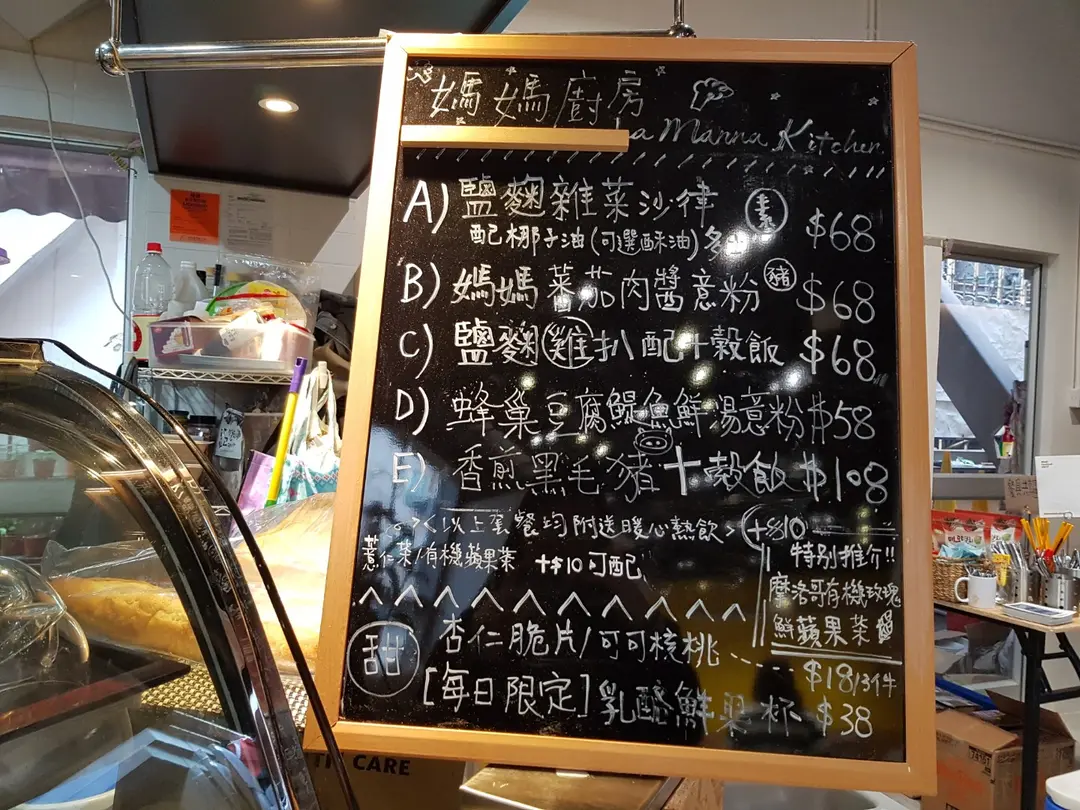 媽媽廚房
La Mamma Kitchen
A) 鹽麴雜菜沙律 素 $68
配椰子油(可選酥油)多士
B) 媽媽蕃茄肉醬意粉 豬 $68
C) 鹽麴雞扒配十穀飯 $68
D) 蜂巢豆腐鯷魚鮮湯意粉 $58
E) 香煎黑毛豬十穀飯 $108
<以上套餐均附送暖心熱飲> +$10
薏仁茶/有機蘋果茶 +$10可配
特別推介!!
摩洛哥有機玫瑰
鮮蘋果茶
甜
杏仁脆片/可可核桃 ---- $18/3件
[每日限定]乳酪鮮果杯 $38
CARE